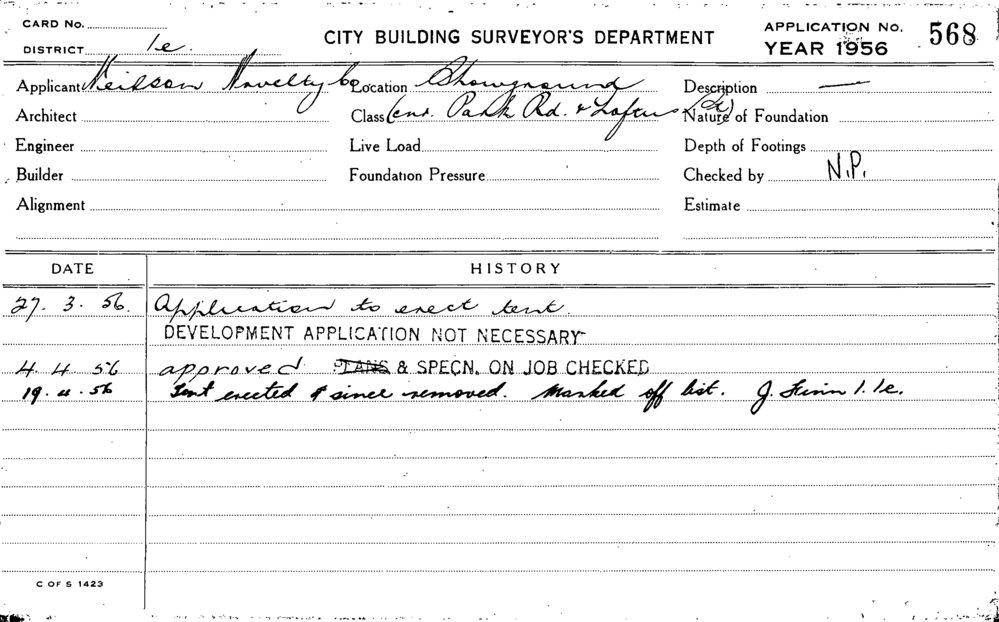 CARD No.
APPLICATION No. 568
DISTRICT 1e.
CITY BUILDING SURVEYOR'S DEPARTMENT
YEAR 1956
Applicant Neilson Novelty Co Location Showground Description —
Architect Class (cnr. Park Rd. & Loftus Nature of Foundation
Engineer Live Load Depth of Footings
Builder Foundation Pressure Checked by N.P.
Alignment Estimate
DATE HISTORY
27. 3. 56. Application to erect tent.
DEVELOPMENT APPLICATION NOT NECESSARY
4. 4. 56 approved PLANS & SPECN. ON JOB CHECKED
19. 4. 56 Tent erected & since removed. Marked off list. J. 1. 1e.
C OF S 1423